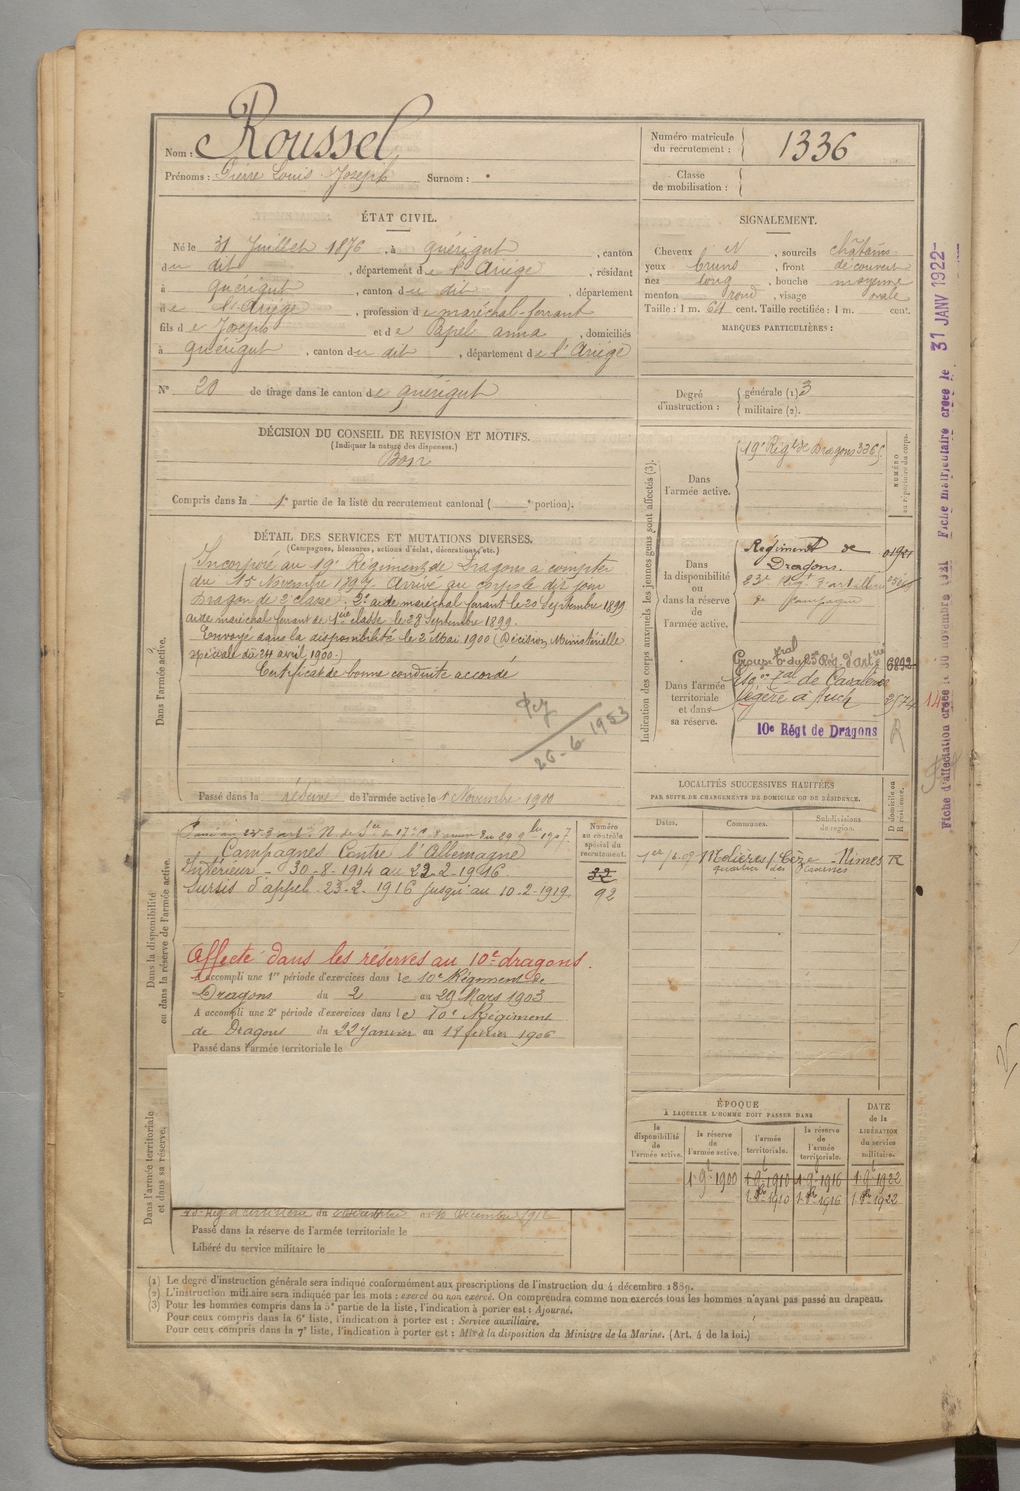 Nom : Roussel
Prénoms : Pierre Louis Joseph Surnom :
Numéro matricule du recrutement : 1336
Classe de mobilisation :
ÉTAT CIVIL.
Né le 31 Juillet 1876, à Quérigut, canton
du dit, département de l'Ariège, résidant
à Quérigut, canton du dit, département
de l'Ariège, profession de maréchal-ferrant
fils de Joseph et de Papel anna, domiciliés
à Quérigut, canton du dit, département de l'Ariège
N° 20 de tirage dans le canton de Quérigut
SIGNALEMENT.
Cheveux et N, sourcils châtains
yeux bruns, front découvert
nez long, bouche moyenne
menton rond, visage ovale
Taille : 1 m. 64 cent. Taille rectifiée : 1 m. cent.
MARQUES PARTICULIÈRES :
Degré d'instruction : générale (1) 3
militaire (2).
DÉCISION DU CONSEIL DE REVISION ET MOTIFS.
(Indiquer la nature des dispenses.)
Bon
Compris dans la 1e partie de la liste du recrutement cantonal ( e portion).
DÉTAIL DES SERVICES ET MUTATIONS DIVERSES.
(Campagnes, blessures, actions d'éclat, décorations, etc.)
Dans l'armée active.
Incorporé au 19e Régiment de Dragons à compter
du 15 Novembre 1897. Arrivé au corps le dit jour
Dragon de 2e classe. 2e aide maréchal ferrant le 20 Septembre 1899
aide maréchal ferrant de 1ère classe le 28 Septembre 1899.
Envoyé dans la disponibilité le 2 Mai 1900 (Décision Ministérielle
spéciale du 24 avril 1900.)
Certificat de bonne conduite accordé
26-6-1953
Passé dans la réserve de l'armée active le 1 Novembre 1900
Indication des corps auxquels les jeunes gens sont affectés (3).
NUMÉRO au répertoire du corps.
Dans l'armée active.
19e Régt de Dragons 3365
Dans la disponibilité ou dans la réserve de l'armée active.
Régiment de
Dragons.
23e Régt d'artillerie
de campagne
Dans l'armée territoriale et dans sa réserve.
Groupe tal du 23e Rég. d'artrie
Esqon tal de Cavalerie
légère à Auch
10e Régt de Dragons
R
Fiche d'affectation créée le 30 novembre 1921 Fiche matriculaire créée le 31 JANV 1922
LOCALITÉS SUCCESSIVES HABITÉES
PAR SUITE DE CHANGEMENTS DE DOMICILE OU DE RÉSIDENCE.
Dates. Communes. Subdivisions de région. D domicile ou R résidence.
Molières s/ Cèze Nîmes R
quartier des
Dans la disponibilité ou dans la réserve de l'armée active.
Numéro au contrôle spécial du recrutement.
32
92
Campagnes Contre l'Allemagne
Intérieur - 30-8-1914 au 22-2-1916.
Sursis d'appel 23-2-1916 jusqu'au 10-2-1919
Affecté dans les réserves au 10e dragons.
A accompli une 1re période d'exercices dans le 10e Régiment de
Dragons du 2 au 29 Mars 1903
A accompli une 2e période d'exercices dans le 10e Régiment
de Dragons du 22 Janvier au 17 février 1906
Passé dans l'armée territoriale le
Dans l'armée territoriale et dans sa réserve.
Passé dans la réserve de l'armée territoriale le
Libéré du service militaire le
ÉPOQUE
À LAQUELLE L'HOMME DOIT PASSER DANS
la disponibilité de l'armée active.
la réserve de l'armée active.
l'armée territoriale.
la réserve de l'armée territoriale.
DATE de la LIBÉRATION du service militaire.
1 9bre 1900 1 9bre 1910 1 9bre 1916 1 9bre 1922
1 8bre 1910 1 8bre 1916 1 8bre 1922
(1) Le degré d'instruction générale sera indiqué conformément aux prescriptions de l'instruction du 4 décembre 1889.
(2) L'instruction militaire sera indiquée par les mots : exercé ou non exercé. On comprendra comme non exercés tous les hommes n'ayant pas passé au drapeau.
(3) Pour les hommes compris dans la 5e partie de la liste, l'indication à porter est : Ajourné.
Pour ceux compris dans la 6e liste, l'indication à porter est : Service auxiliaire.
Pour ceux compris dans la 7e liste, l'indication à porter est : Mis à la disposition du Ministre de la Marine. (Art. 4 de la loi.)